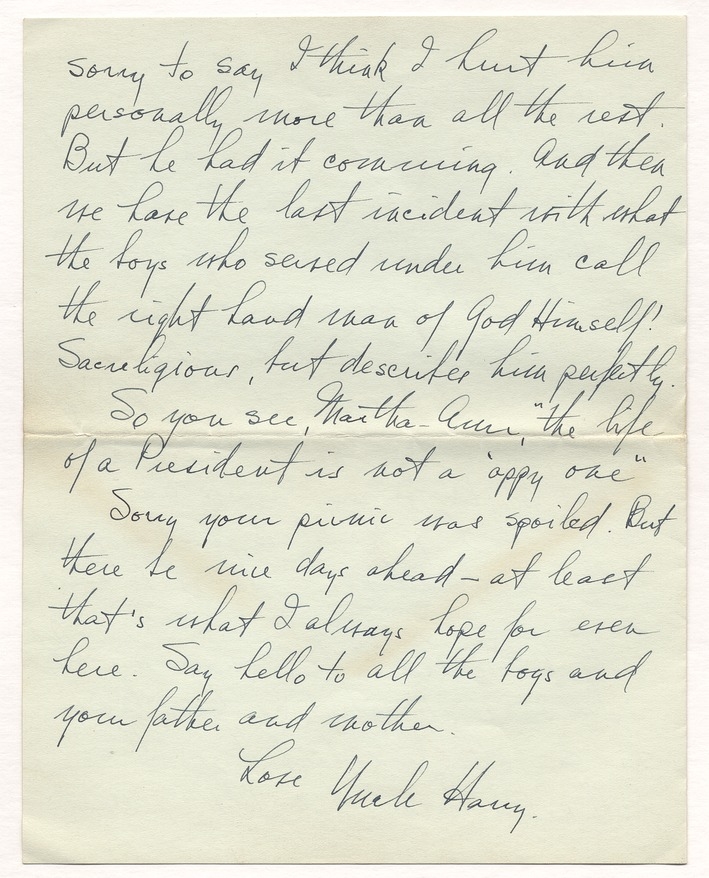 sorry to say I think I hurt him
personally more than all the rest.
But he had it comming. And then
we have the last incident with what
the boys who served under him call
the right hand man of God Himself!
Sacreligious, but describes him perfectly.
So you see, Martha-Ann, "the life
of a President is not a 'appy one"
Sorry your picnic was spoiled. But
there be nice days ahead – at least
that's what I always hope for even
here. Say hello to all the boys and
your father and mother.
Love
Uncle Harry.